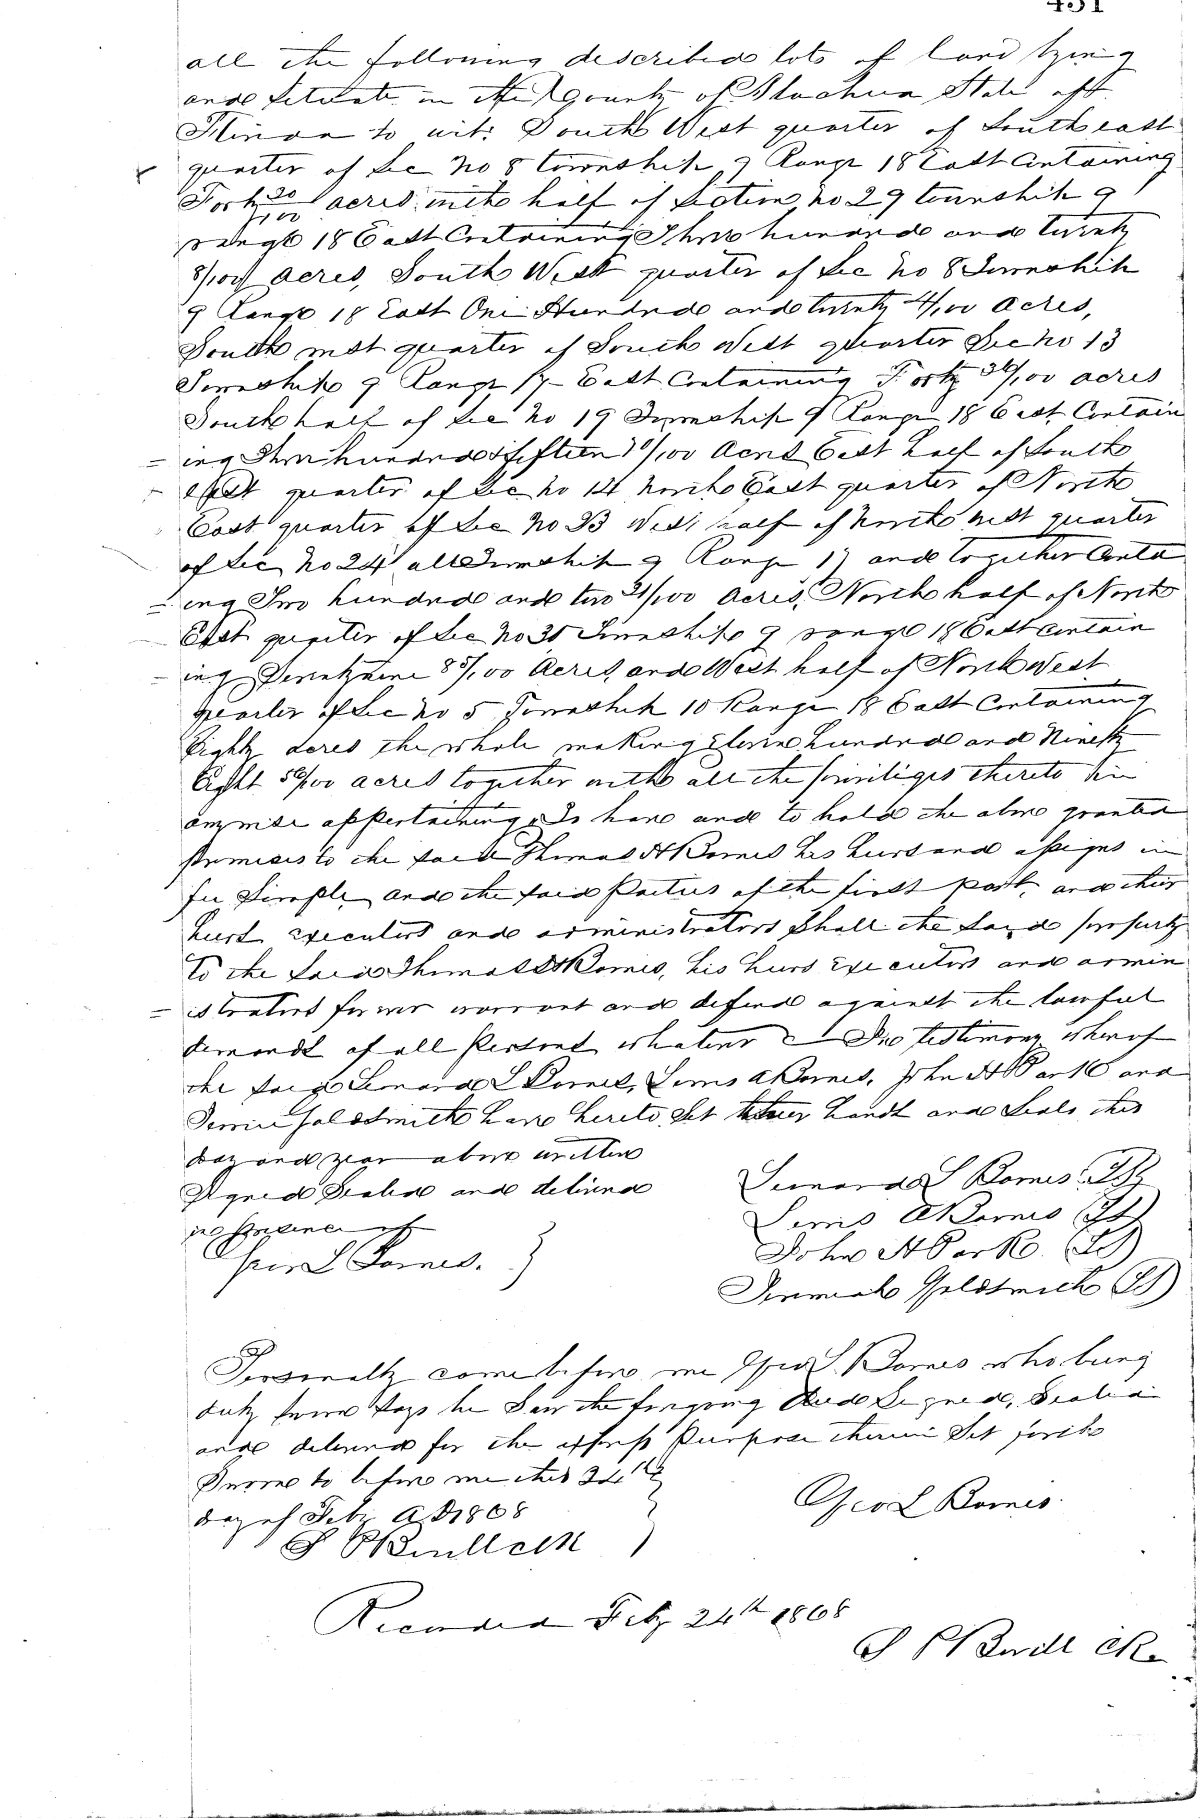 451
all the following described lots of land lying
and situate in the County of Alachua State of
Florida to wit: South West quarter of South east
quarter of Sec No 8 township 9 Range 18 East Containing
Forty 20/100 acres half of Section No 29 township 9
range 18 East Containing Three hundred and twenty
8/100 acres, South West quarter of Sec No 8 Township
9 Range 18 East One Hundred and twenty 4/100 acres,
South west quarter of South West quarter Sec No 13
Township 9 Range 17 East Containing Forty 36/100 acres
South half of Sec No 19 Township 9 Range 18 East Contain
=ing Three hundred & fifteen /100 Acres East half of South
East quarter of Sec No 14 North East quarter of North
East quarter of Sec No 23 West half of North west quarter
of Sec No 24 all Township 9 Range 17 and together Conta
=ing Two hundred and two 31/100 Acres, North half of North
East quarter of Sec No 30 Township 9 range 18 East Contain
=ing Seventy nine 85/100 Acres, and West half of North West
quarter of Sec No 5 Township 10 Range 18 East Containing
Eighty acres the whole making Eleven hundred and Ninety
Eight 50/100 acres together with all the priviliges thereto in
anywise appertaining To have and to hold the above granted
premises to the said Thomas H Barnes his heirs and assigns in
fee Simple, and the said Parties of the first part, and their
heirs executors and administrators Shall the Said property
To the Said Thomas H Barnes, his heirs Executors and admin
=istrators forever warrant and defend against the lawful
demands of all Persons whatever In testimony whereof
the said Leonard L Barnes, Lewis A Barnes, John H Park and
Goldsmith have hereto Set their hands and Seals the
day and year above written
Signed Sealed and delivered
in presence of
Geo L Barnes.
Leonard L Barnes (LS)
Lewis A Barnes (LS)
John H Park (LS)
Goldsmith (LS)
Personally came before me Geo L. Barnes who being
duly sworn Says he Saw the foregoing Deed Signed, Sealed
and delivered for the express Purpose therein Set forth
Sworn to before me this 24th
day of Feby A.D 1868
Geo L Barnes
Recorded Feby 24th 1868